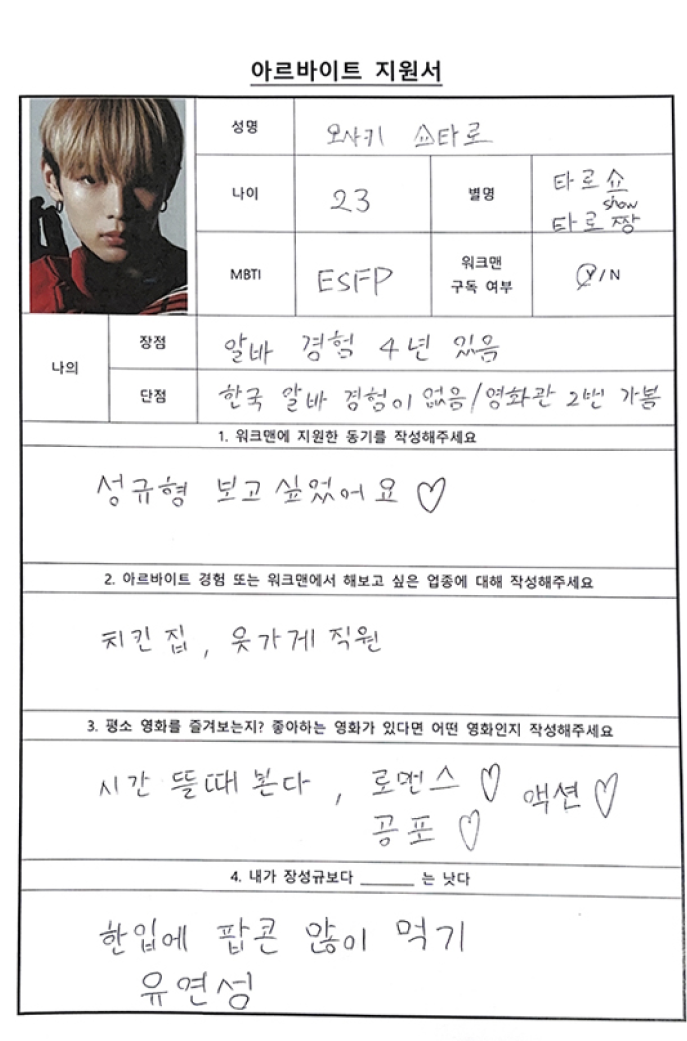 아르바이트 지원서
성명
오사키 쇼타로
나이
23
별명
타르쇼
show
타로 짱
MBTI
ESFP
워크맨
구독 여부
Y/N
나의
장점
알바 경험 4년 있음
단점
한국 알바 경험이 없음/영화관 2번 가봄
1. 워크맨에 지원한 동기를 작성해주세요
성규형 보고 싶었어요♡
2. 아르바이트 경험 또는 워크맨에서 해보고 싶은 업종에 대해 작성해주세요
치킨 집, 옷가게 직원
3. 평소 영화를 즐겨보는지? 좋아하는 영화가 있다면 어떤 영화인지 작성해주세요
시간 뜰때 본다, 로멘스♡ 액션♡
공포♡
4. 내가 장성규보다 ______ 는 낫다
한입에 팝콘 많이 먹기
유연성